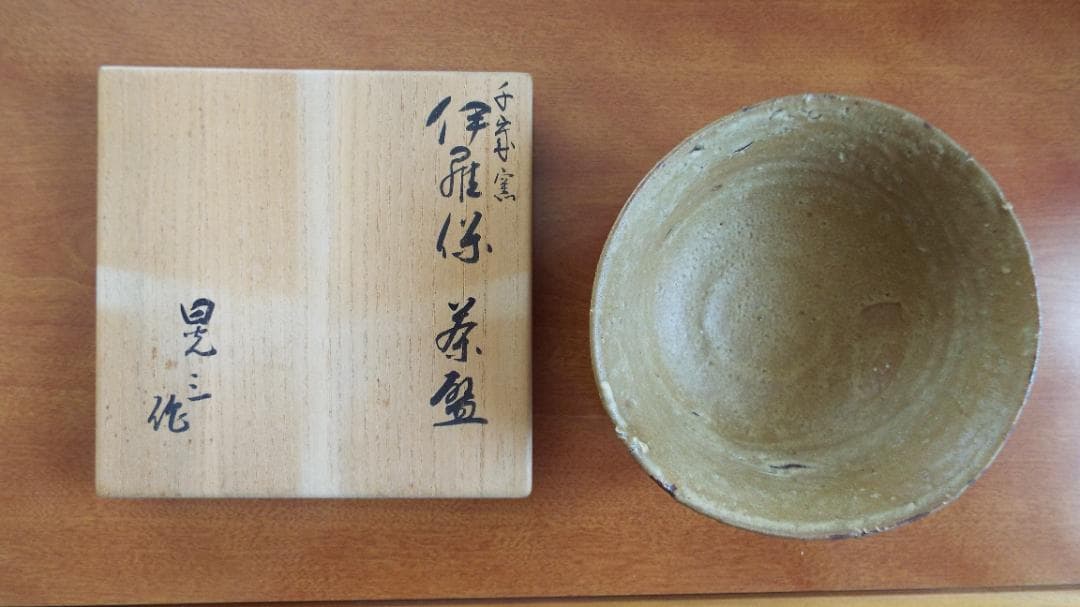 千歳窯
伊羅保 茶盌
晃三作